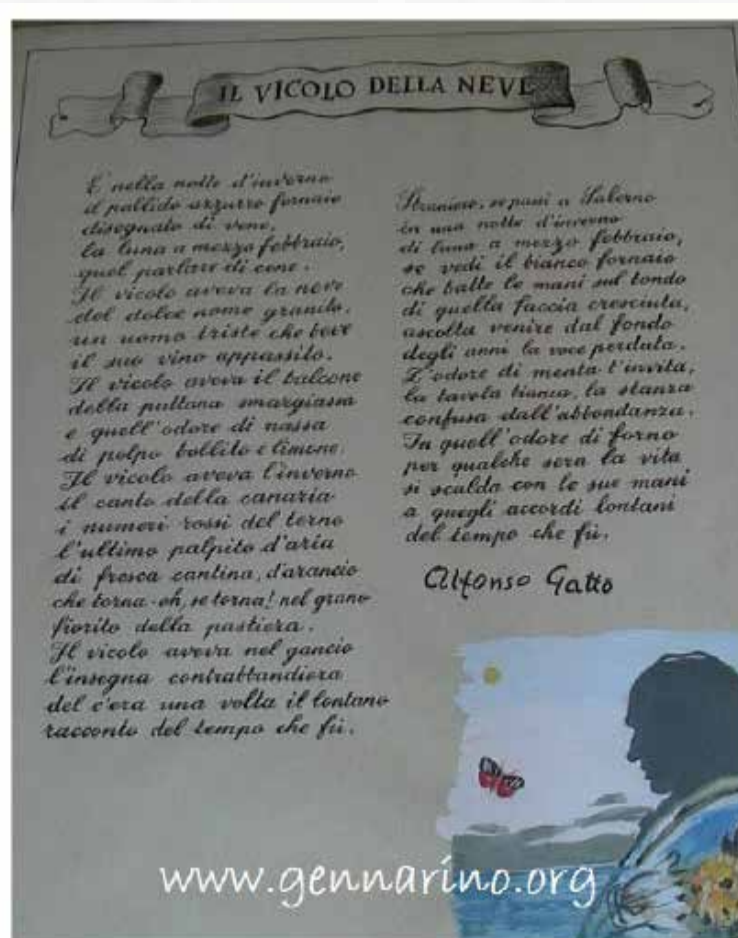 IL VICOLO DELLA NEVE
E nella notte d'inverno
il pallido azzurro fornaio
disegnato di vene,
la luna a mezzo febbraio,
quel parlare di cene.
Il vicolo aveva la neve
del dolce nome granito,
un uomo triste che beve
il suo vino appassito.
Il vicolo aveva il balcone
della puttana smargiassa
e quell'odore di nassa
di polpo bollito e limone.
Il vicolo aveva l'inverno
il canto della canaria
i numeri rossi del terno
l'ultimo palpito d'aria
di fresca cantina, d'arancio
che torna-oh, se torna! nel grano
fiorito della pastiera.
Il vicolo aveva nel gancio
l'insegna contrabbandiera
del c'era una volta il lontano
racconto del tempo che fù.
Straniero, se passi a Salerno
in una notte d'inverno
di luna a mezzo febbraio,
se vedi il bianco fornaio
che batte le mani sul tondo
di quella faccia cresciuta,
ascolta venire dal fondo
degli anni la voce perduta.
L'odore di menta t'invita,
la tavola bianca, la stanza
confusa dall'abbondanza.
In quell'odore di forno
per qualche sera la vita
si scalda con le sue mani
a quegli accordi lontani
del tempo che fù.
Alfonso Gatto
www.gennarino.org